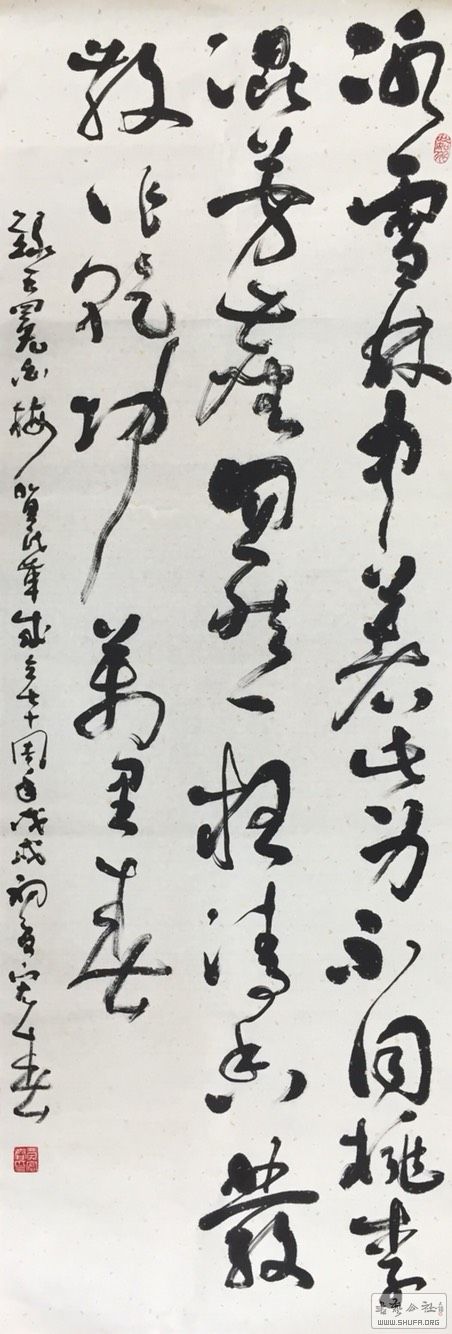 冰雪林中著此身不同桃李
混芳塵忽然一清香發
散作乾坤萬里春
錄王冕白梅 賀民革成立七十周年戊戌初夏春
书艺公社
WWW.SHUFA.ORG